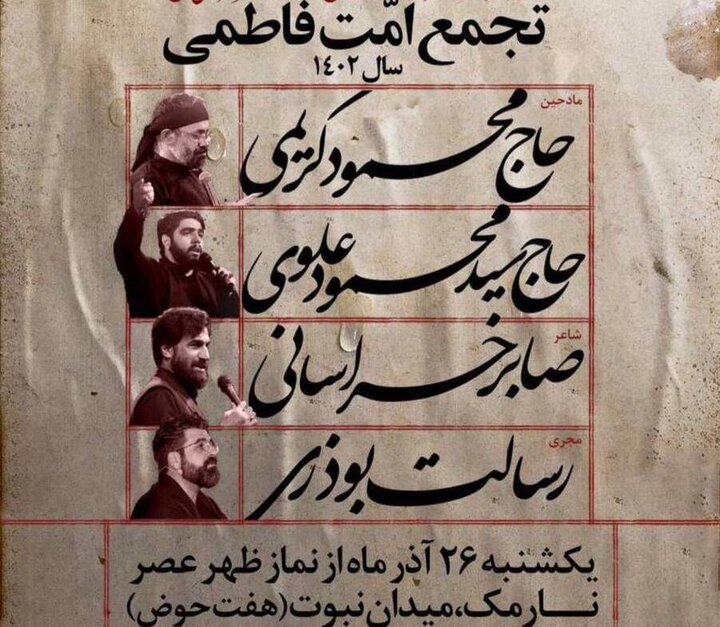 تجمع امّت فاطمی
سال ۱۴۰۲
مادحین
حاج محمود کریمی
حاج سید محمود علوی
شاعر
صابر خراسانی
مجری
رسالت بوذری
یکشنبه ۲۶ آذر ماه از نماز ظهر عصر
نارمک، میدان نبوت (هفت حوض)